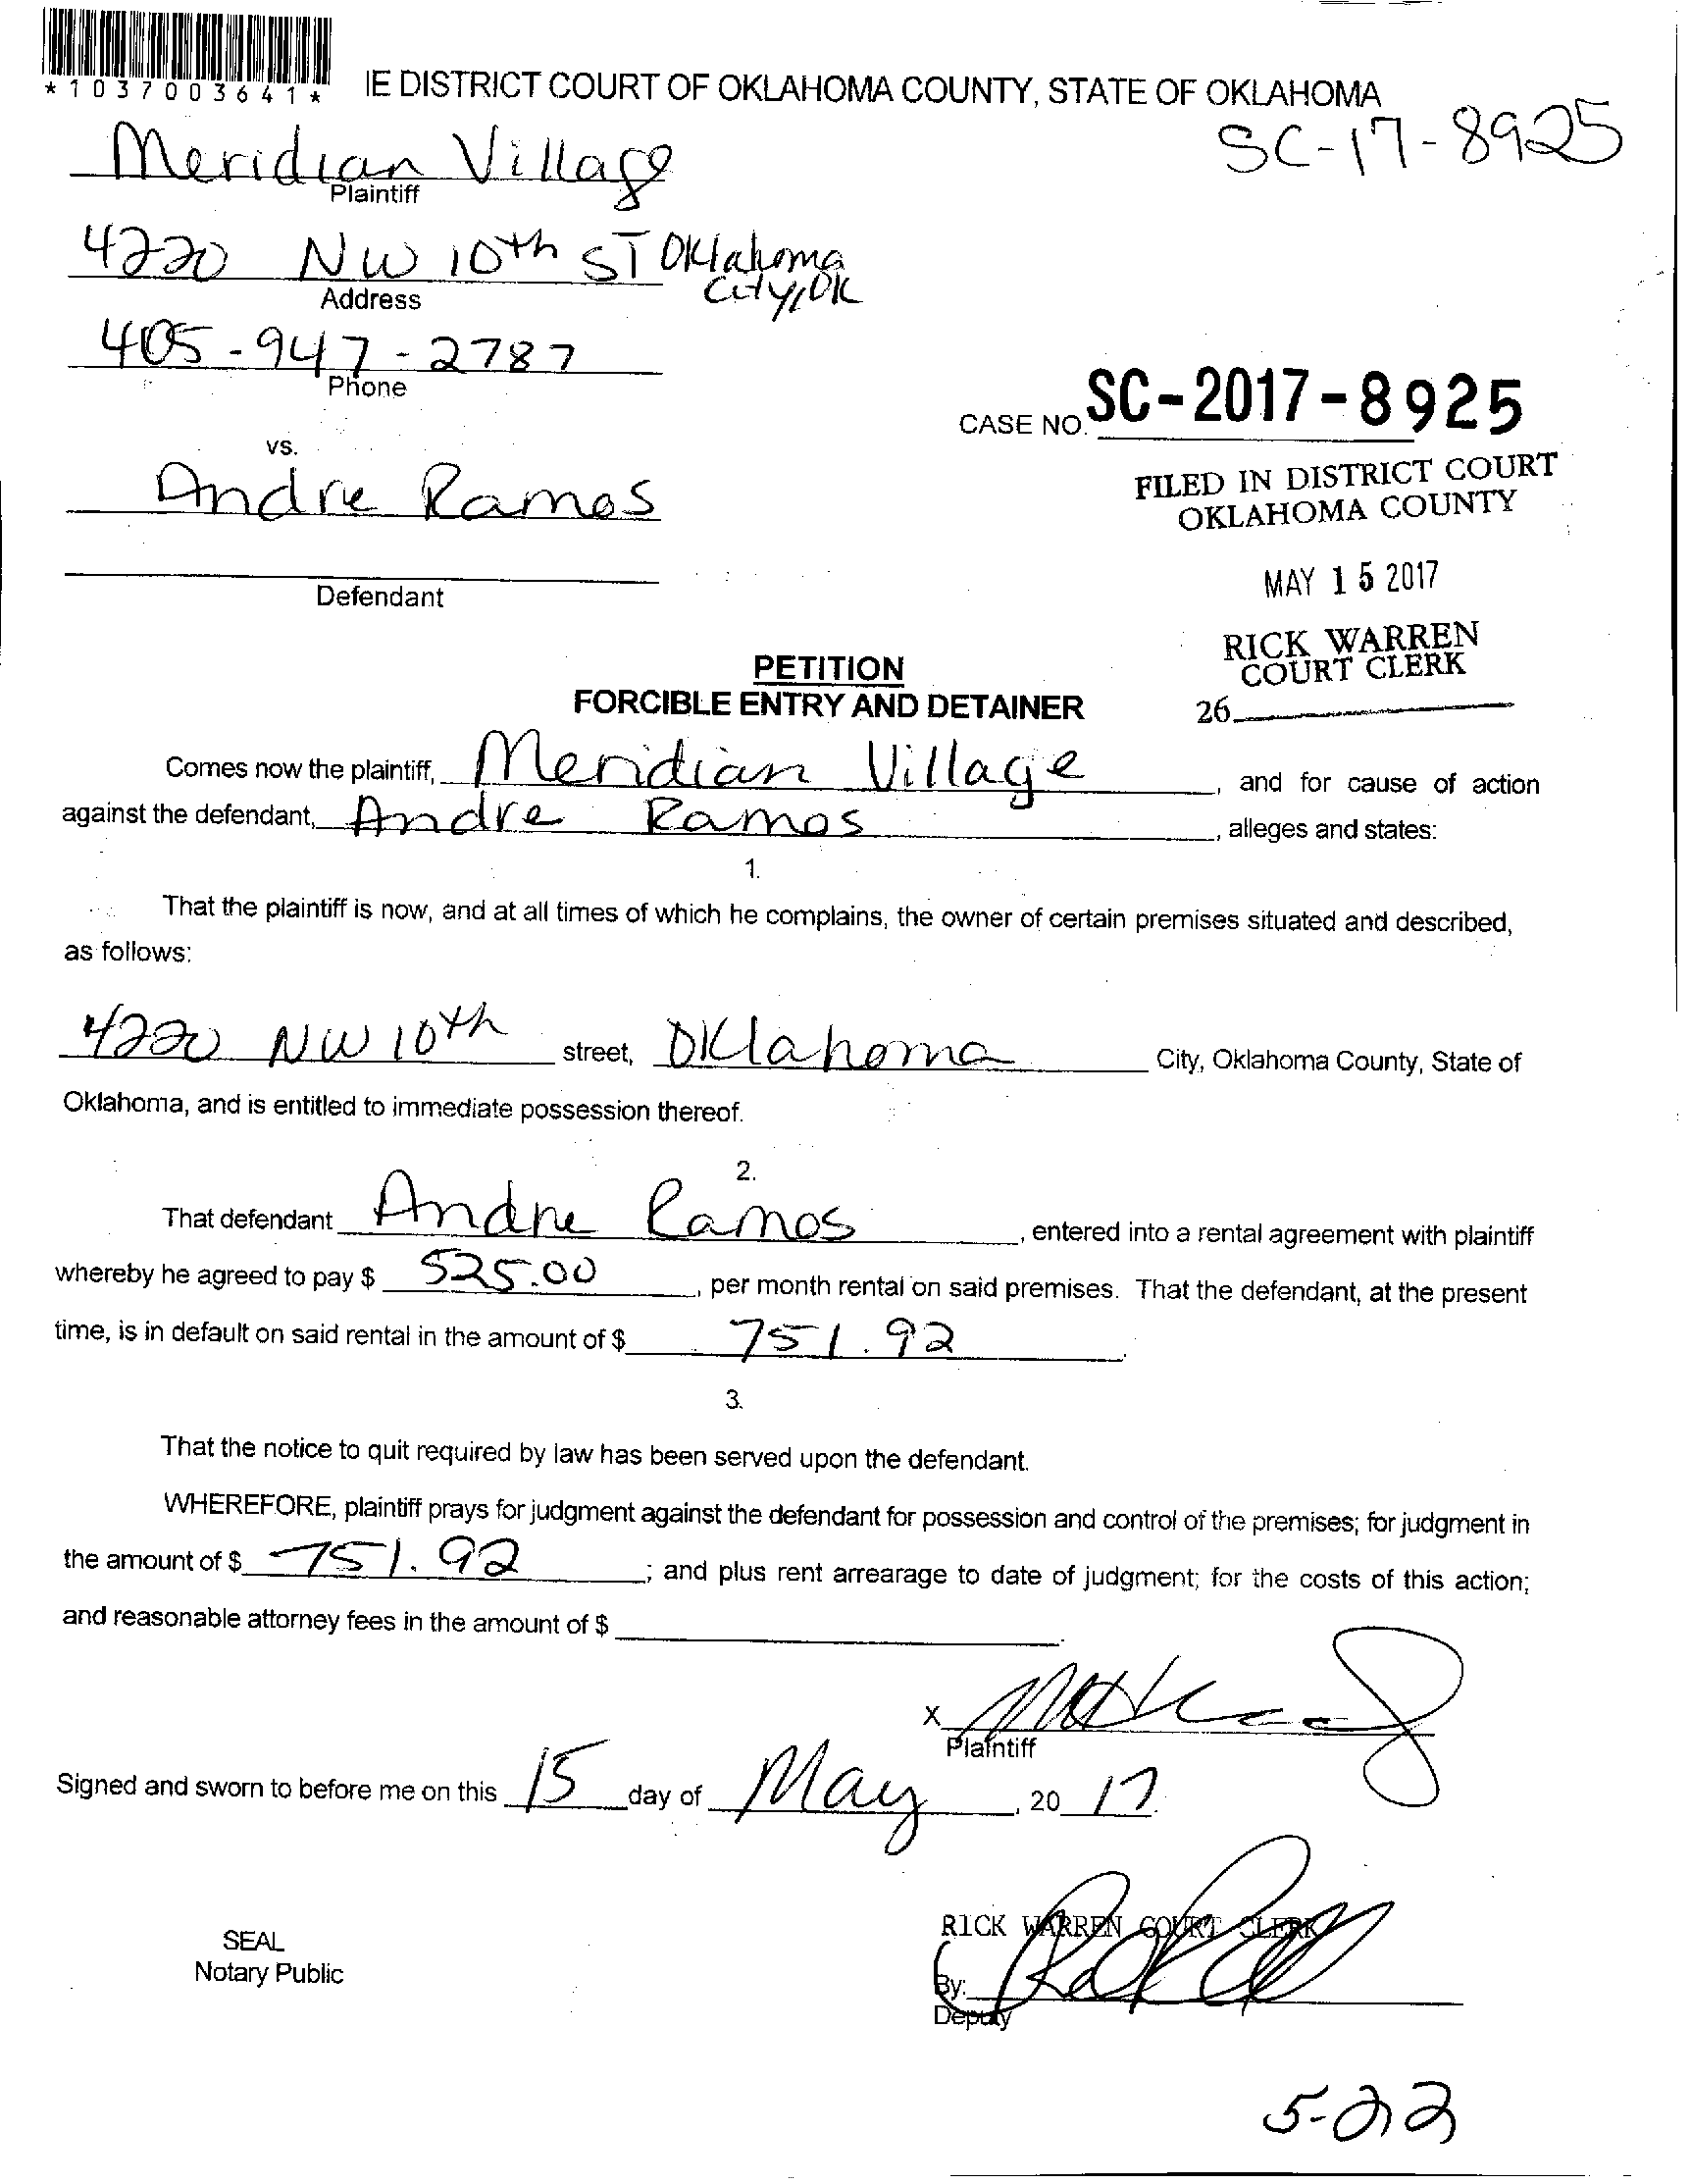 *1037003641*
IE DISTRICT COURT OF OKLAHOMA COUNTY, STATE OF OKLAHOMA
SC-17-8925
Meridian Village
Plaintiff
4220 NW 10th ST Oklahoma
City, OK
Address
405-947-2787
Phone
CASE NO. SC-2017-8925
vs.
FILED IN DISTRICT COURT
OKLAHOMA COUNTY
Andre Ramos
MAY 15 2017
Defendant
RICK WARREN
COURT CLERK
26
PETITION
FORCIBLE ENTRY AND DETAINER
Comes now the plaintiff, Meridian Village, and for cause of action
against the defendant, Andre Ramos, alleges and states:
1.
That the plaintiff is now, and at all times of which he complains, the owner of certain premises situated and described,
as follows:
4220 NW 10th street, Oklahoma City, Oklahoma County, State of
Oklahoma, and is entitled to immediate possession thereof.
2.
That defendant Andre Ramos, entered into a rental agreement with plaintiff
whereby he agreed to pay $ 525.00, per month rental on said premises. That the defendant, at the present
time, is in default on said rental in the amount of $ 751.92.
3.
That the notice to quit required by law has been served upon the defendant.
WHEREFORE, plaintiff prays for judgment against the defendant for possession and control of the premises; for judgment in
the amount of $ 751.92; and plus rent arrearage to date of judgment; for the costs of this action;
and reasonable attorney fees in the amount of $
X
Plaintiff
Signed and sworn to before me on this 15 day of May, 20 17.
RICK WARREN COURT CLERK
SEAL
Notary Public
By:
Deputy
5-22